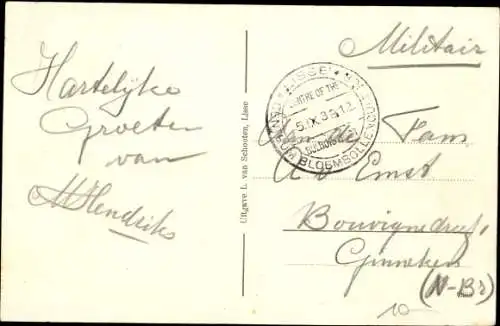 Hartelijke
Groeten
van
M Hendriks
Uitgave L. van Schooten, Lisse
LISSE
CENTRUM BLOEMBOLLENCULTUUR
CENTRE OF THE
5.IX.39.12
Militair
Aan de Fam
A v Ernst
Bouvignedreef
Ginneken
(N-Br)
10